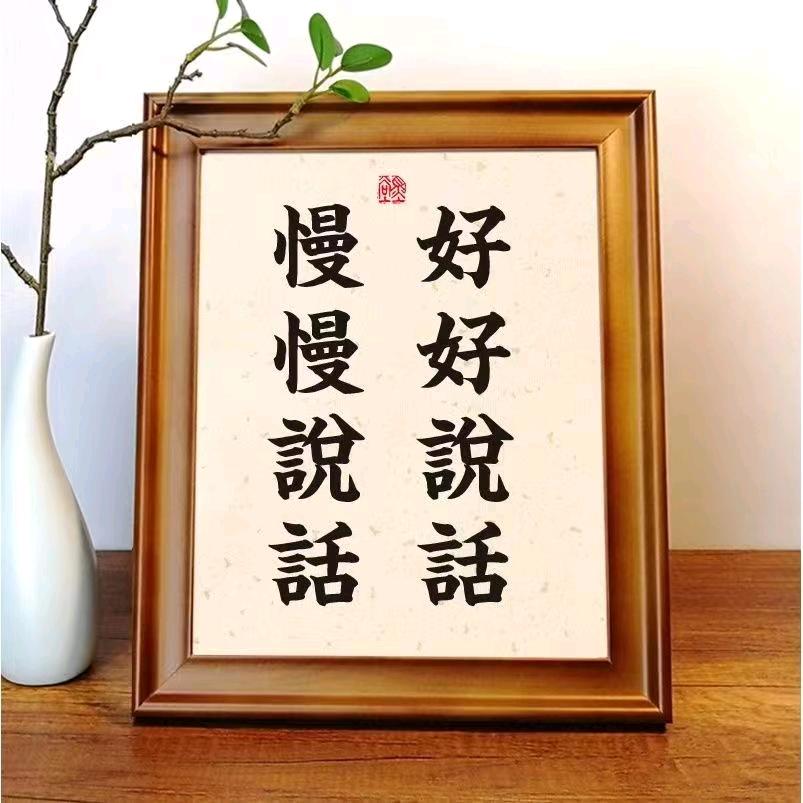 好好說話
慢慢說話